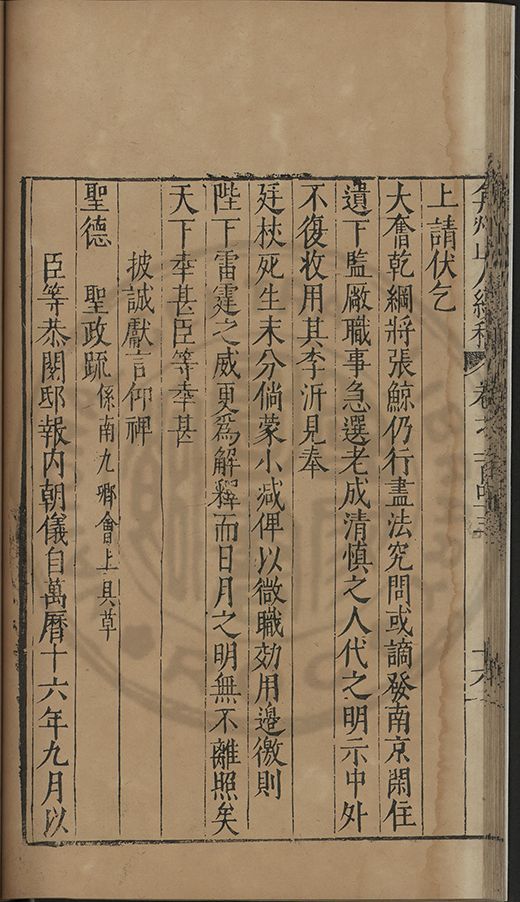 上請伏乞
大奮乾綱將張鯨仍行盡法究問或謫發南京閑住
遺下監厰職事急選老成清慎之人代之明示中外
不復收用其李沂見奉
廷杖死生未分倘蒙小減俾以微職効用邊徼則
陛下雷霆之威更爲解釋而日月之明無不離照矣
天下幸甚臣等幸甚
披誠獻言仰裨
聖德 聖政疏係南九卿會上具草
臣等恭閱邸報內朝儀自萬曆十六年九月以